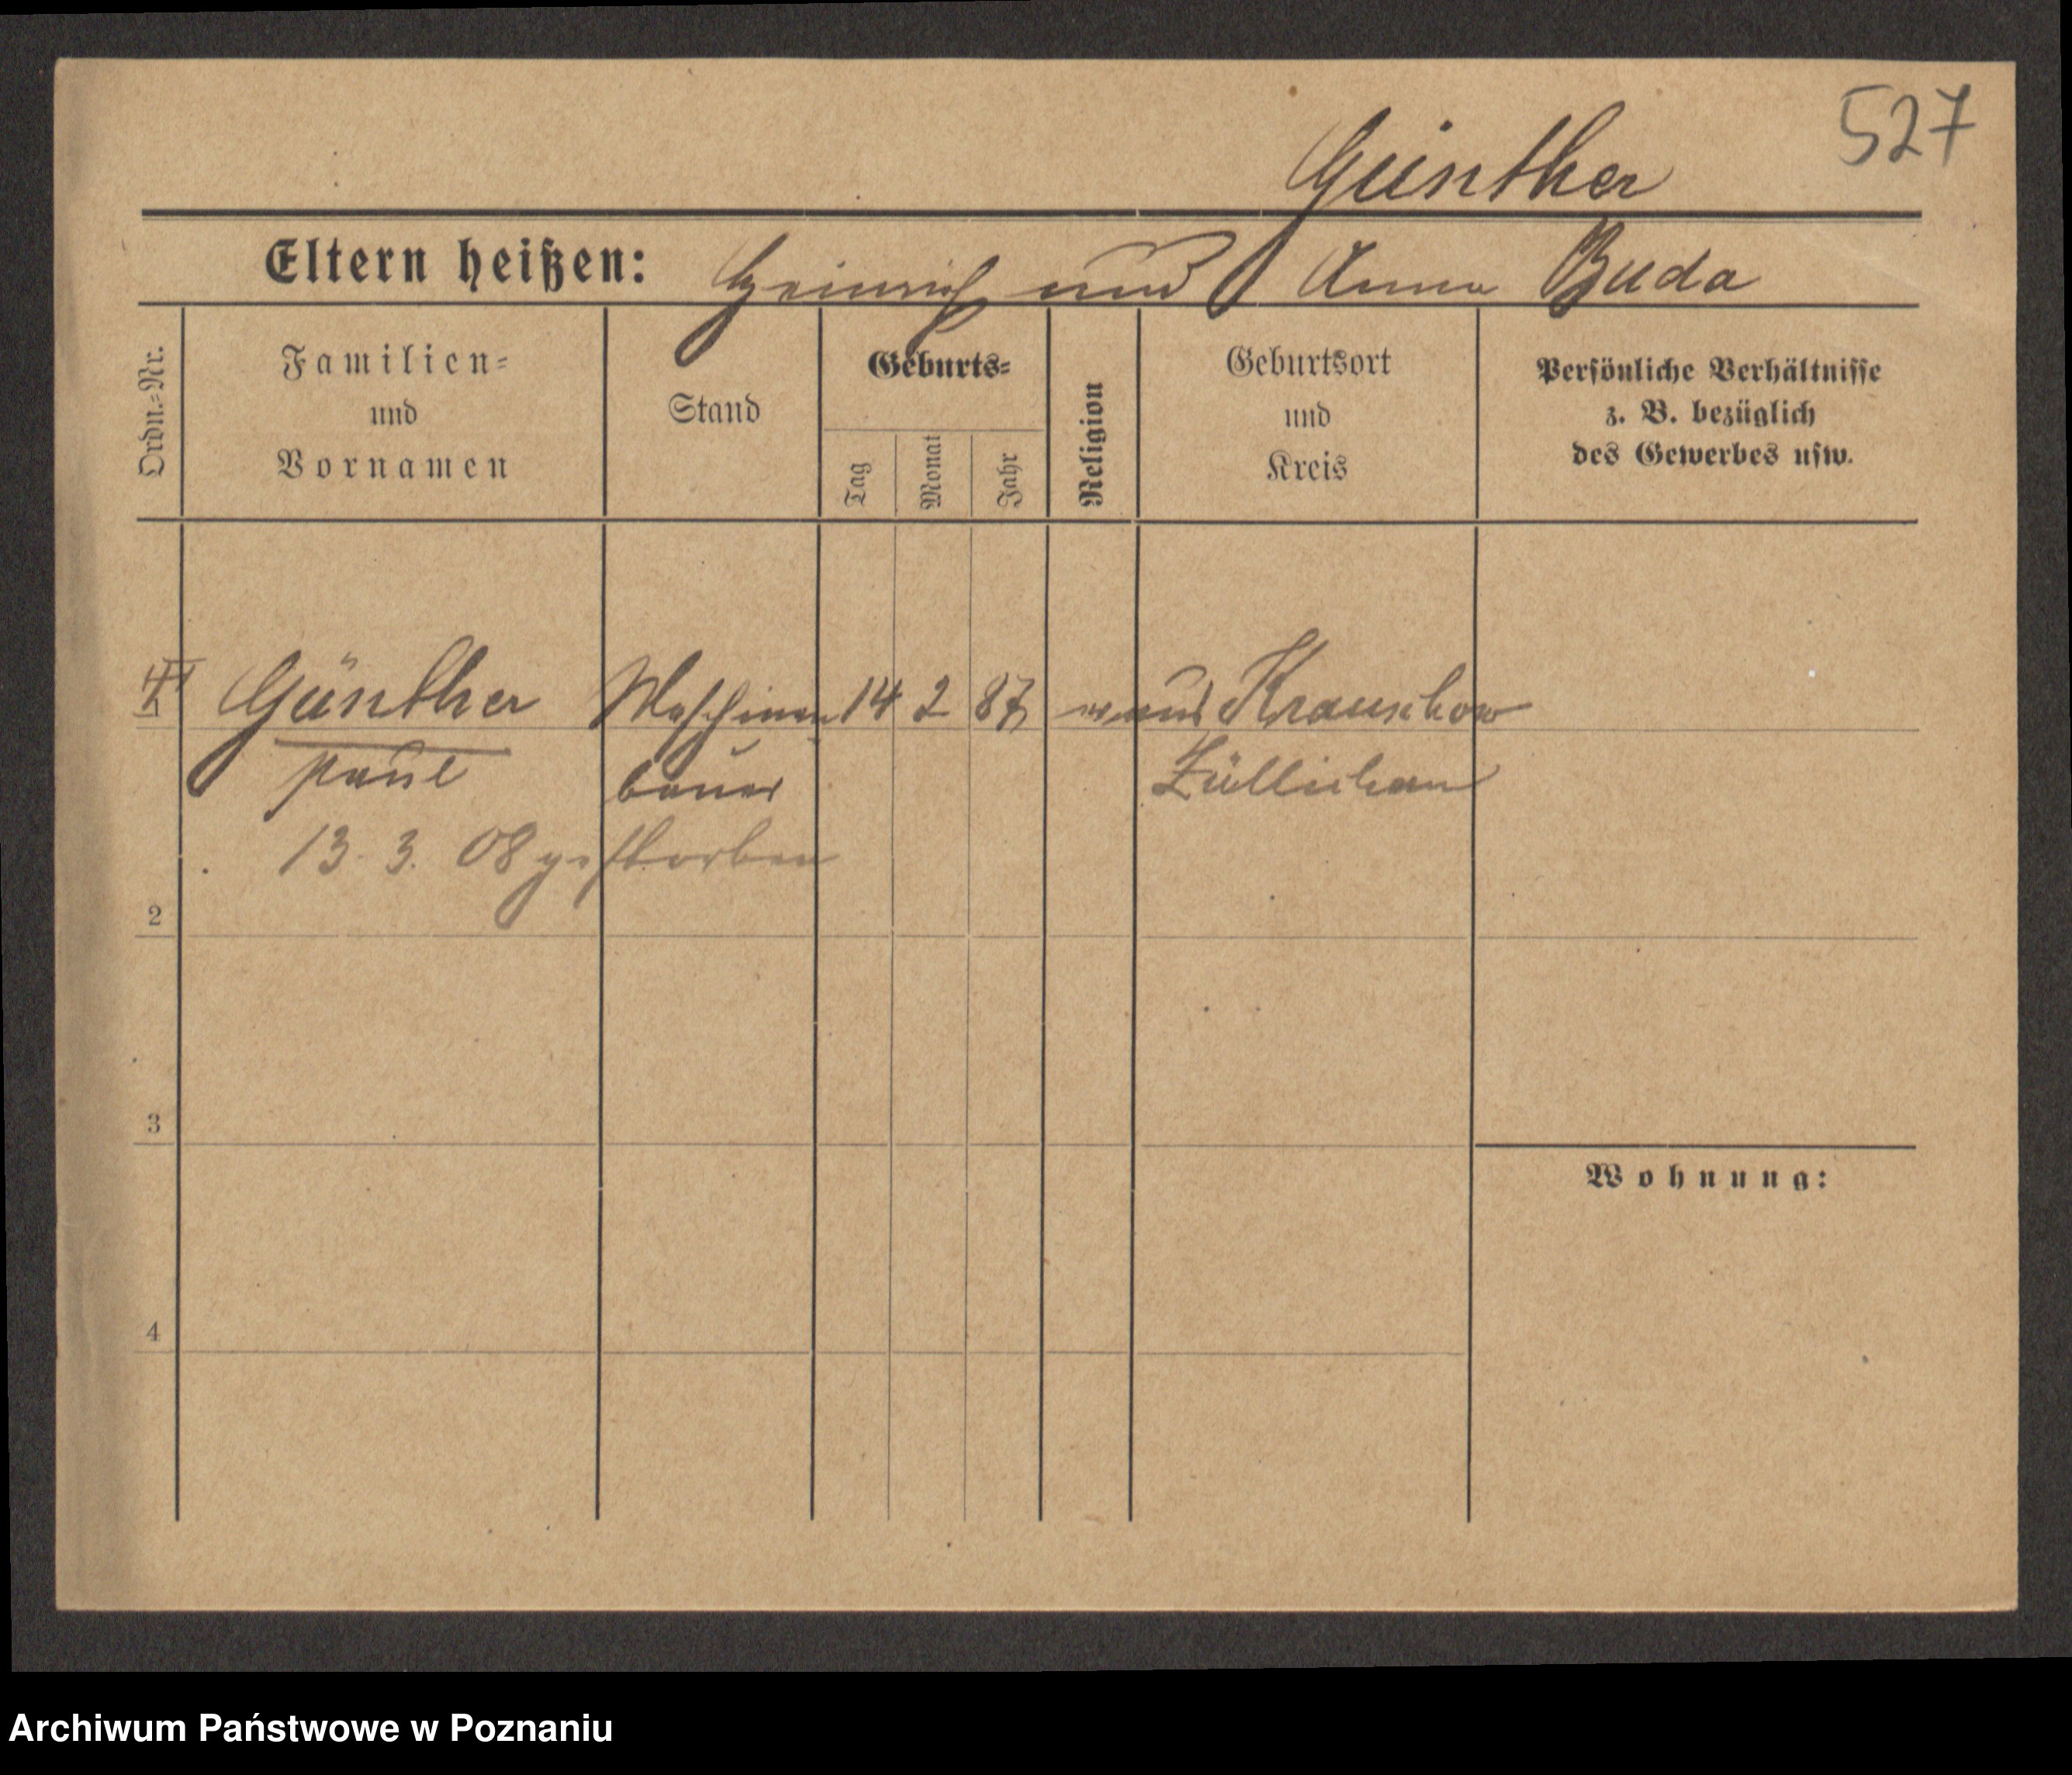 527
Günther
Eltern heißen: Heinrich und Anna Buda
Ordn.-Nr.
Familien-
und
Vornamen
Stand
Geburts-
Tag
Monat
Jahr
Religion
Geburtsort
und
Kreis
Persönliche Verhältnisse
z. B. bezüglich
des Gewerbes usw.
Günther Maschinen 14 2 87 Krauschow
Paul bauer Züllichau
13. 3. 08 gestorben
2
3
Wohnung:
4
Archiwum Państwowe w Poznaniu